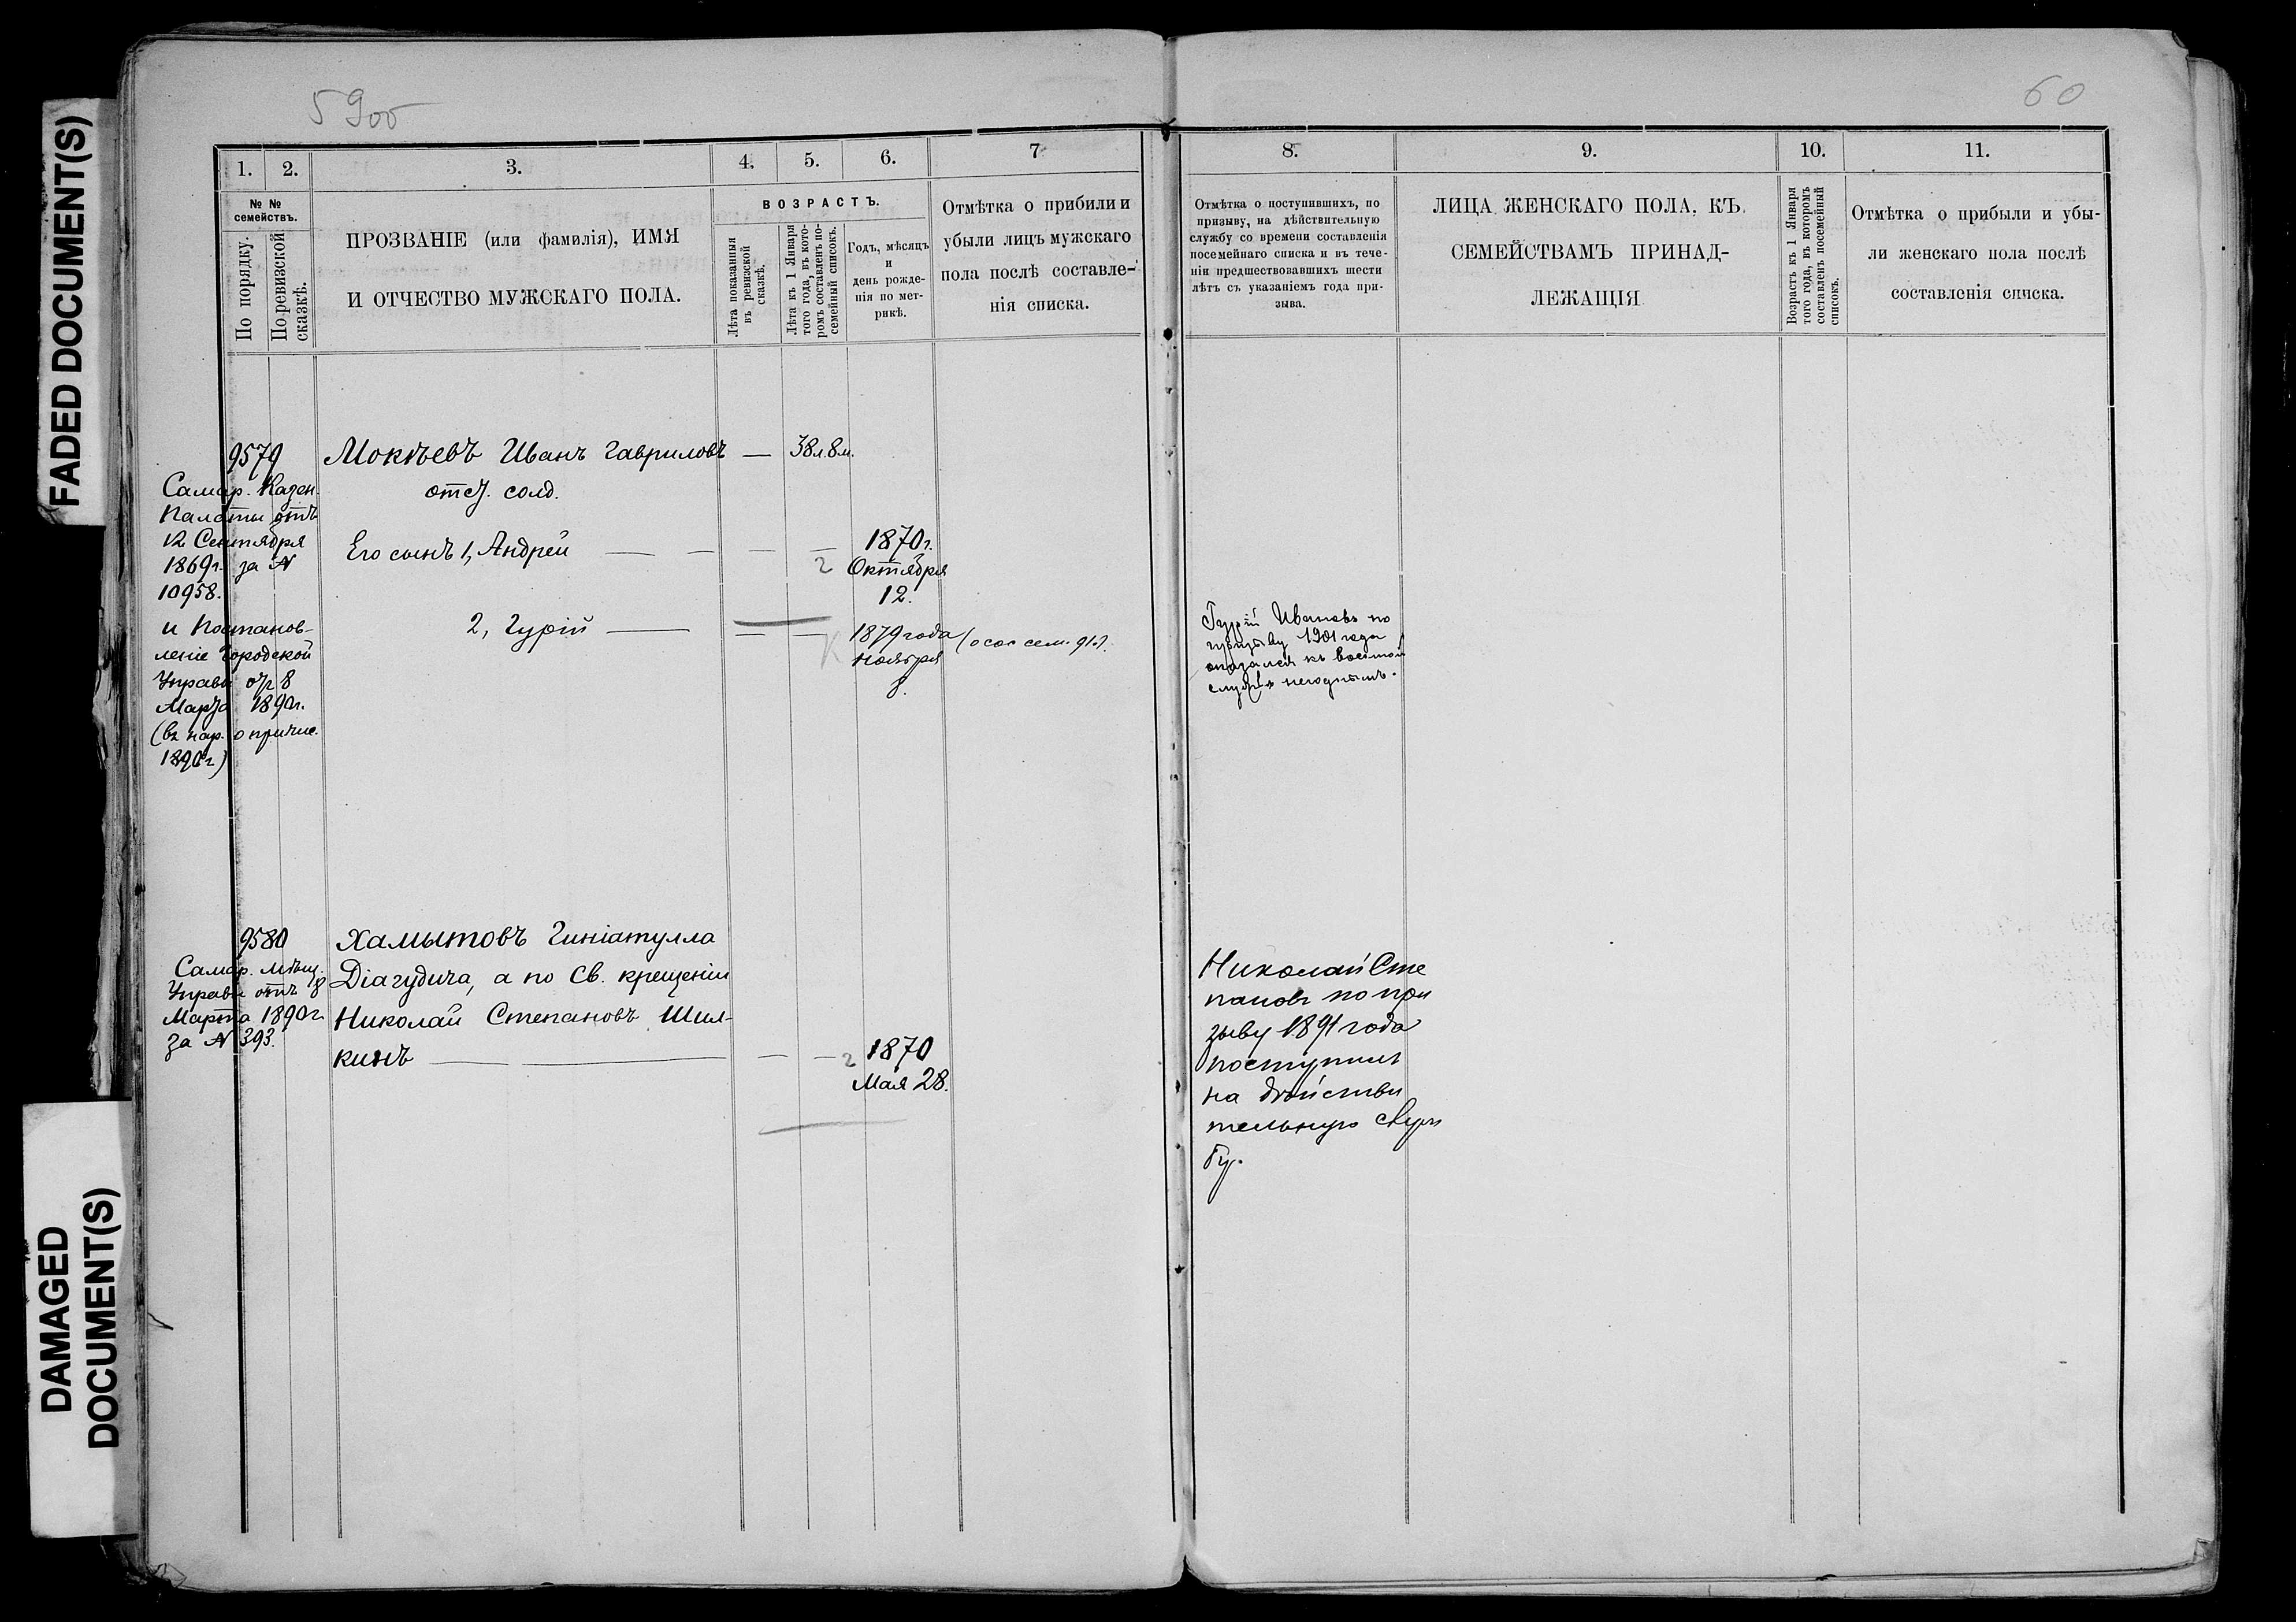 FADED DOCUMENT(S)
DAMAGED
DOCUMENT(S)
59об
60
1.
2.
3.
4.
5.
6.
7
8.
9.
10.
11.
№ №
семействъ.
По порядку.
По ревизской
сказкѣ.
ПРОЗВАНІЕ (или фамилія), ИМЯ
И ОТЧЕСТВО МУЖСКАГО ПОЛА.
ВОЗРАСТЪ.
Лѣта показанныя
въ ревизской
сказкѣ.
Лѣта къ 1 Января
того года, въ кото-
ромъ составленъ по-
семейный списокъ.
Годъ, мѣсяцъ
и
день рожде-
нія по мет-
рикѣ.
Отмѣтка о прибыли и
убыли лицъ мужскаго
пола послѣ составле-
нія списка.
Отмѣтка о поступившихъ, по
призыву, на дѣйствительную
службу со времени составленія
посемейнаго списка и въ тече-
ніи предшествовавшихъ шести
лѣтъ съ указаніемъ года при-
зыва.
ЛИЦА ЖЕНСКАГО ПОЛА, КЪ
СЕМЕЙСТВАМЪ ПРИНАД-
ЛЕЖАЩІЯ
Возрастъ къ 1 Января
того года, въ которомъ
составленъ посемейный
списокъ.
Отмѣтка о прибыли и убы-
ли женскаго пола послѣ
составленія списка.
9579
Самар. Казен.
Палаты отъ
12 Сентября
1869г. за №
10958.
и Постанов-
леніе Городской
Управы от 8
Марта 1890г.
(въ нар. о причис.
1890г)
Мокѣевъ Иванъ Гавриловъ — 38л.8м.
отст. солд.
Его сынъ 1, Андрей
2
1870г.
Октября
12.
2, Гурій
1879 года
Ноября
8.
Гурій Ивановъ по
призыву 1901 года
оказался къ военной
службѣ негоднымъ.
9580
Самар. Мѣщ.
Управы отъ 8
Марта 1890г
за № 393.
Хамытовъ Гиніатулла
Діагудича, а по Св. крещеніи
Николай Степановъ Шил-
кинъ
2
1870
Мая 28.
Николай Сте
пановъ по при
зыву 1891 года
поступилъ
на дѣйстви
тельную служ
бу.